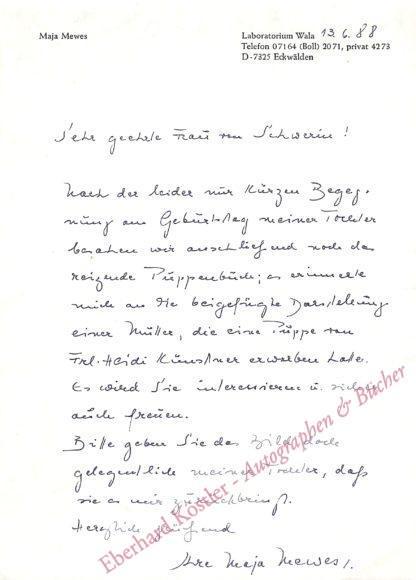 Maja Mewes
Laboratorium Wala 13.6.88
Telefon 07164 (Boll) 2071, privat 4273
D-7325 Eckwälden
Sehr geehrte Frau von Schwerin!
Nach der leider nur kurzen Begeg-
nung am Geburtstag meiner Tochter
besahen wir anschließend noch das
reizende Puppenbuch; es erinnerte
mich an die beigefügte Darstellung
einer Mutter, die eine Puppe von
Frl. Heidi Künstner erworben hatte.
Es wird Sie interessieren u. sicher
auch freuen.
Bitte geben Sie das Bild doch
gelegentlich meiner Tochter, daß
sie es mir zurückbringt.
Herzlich grüßend
Ihre Maja Mewes.
Eberhard Köstler - Autographen & Bücher